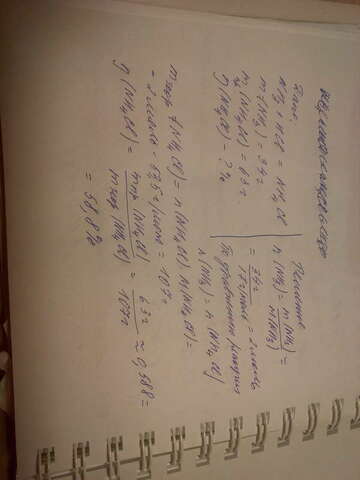 Дано:
NH3 + HCl = NH4Cl
m(NH3) = 34г
m пр (NH4Cl) = 63г
η(NH4Cl) - ?%
Решение
n(NH3) = m(NH3) / M(NH3) =
= 34г / 17г/моль = 2моль
По уравнению реакции
n(NH3) = n(NH4Cl)
m теор (NH4Cl) = n(NH4Cl) · M(NH4Cl) =
= 2моль · 53,5г/моль = 107г
η(NH4Cl) = m пр (NH4Cl) / m теор (NH4Cl) = 63г / 107г ≈ 0,588 =
= 58,8%